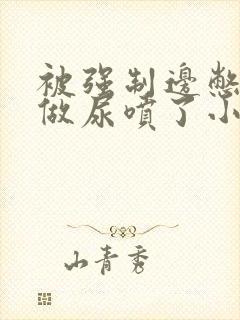 被强制邊憋
做尿噴了小
山青秀